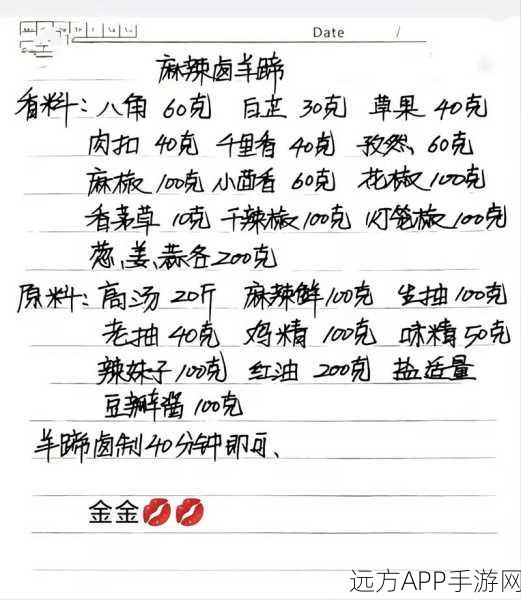 Date /
麻辣卤羊蹄
香料：八角 60克 白芷 30克 草果 40克
肉扣 40克 千里香 40克 孜然 60克
麻椒 100克 小茴香 60克 花椒 100克
香茅草 10克 干辣椒 100克 灯笼椒 100克
葱、姜、蒜各200克
原料：高汤 20斤 麻辣鲜 100克 生抽 100克
老抽 40克 鸡精 100克 味精 50克
辣妹子 100克 红油 200克 盐适量
豆瓣酱 100克
羊蹄卤制40分钟即可、
金金💋💋
远方APP手游网